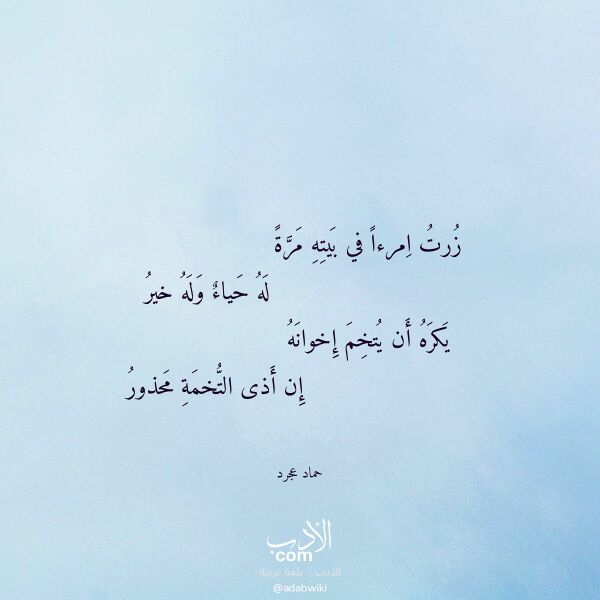 زُرتُ اِمرءاً في بَيتِهِ مَرَّةً
لَهُ حَياءٌ وَلَهُ خيرُ
يَكرَهُ أَن يُتخِمَ إِخوانَهُ
إِن أَذى التُّخمَةِ مَحذورُ
حماد عجرد
الأدب
com
الأدب .. بلغة عربية
@adabwiki